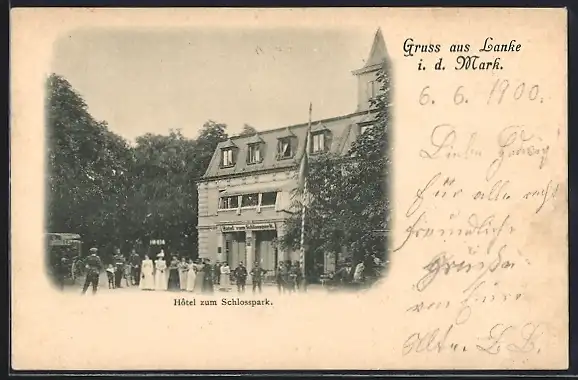 Gruss aus Lanke
i. d. Mark.
6. 6. 1900.
Liebe
Für alle
freundliche
Grüße
von Eure
Hôtel zum Schlosspark.
Hôtel zum Schlosspark.